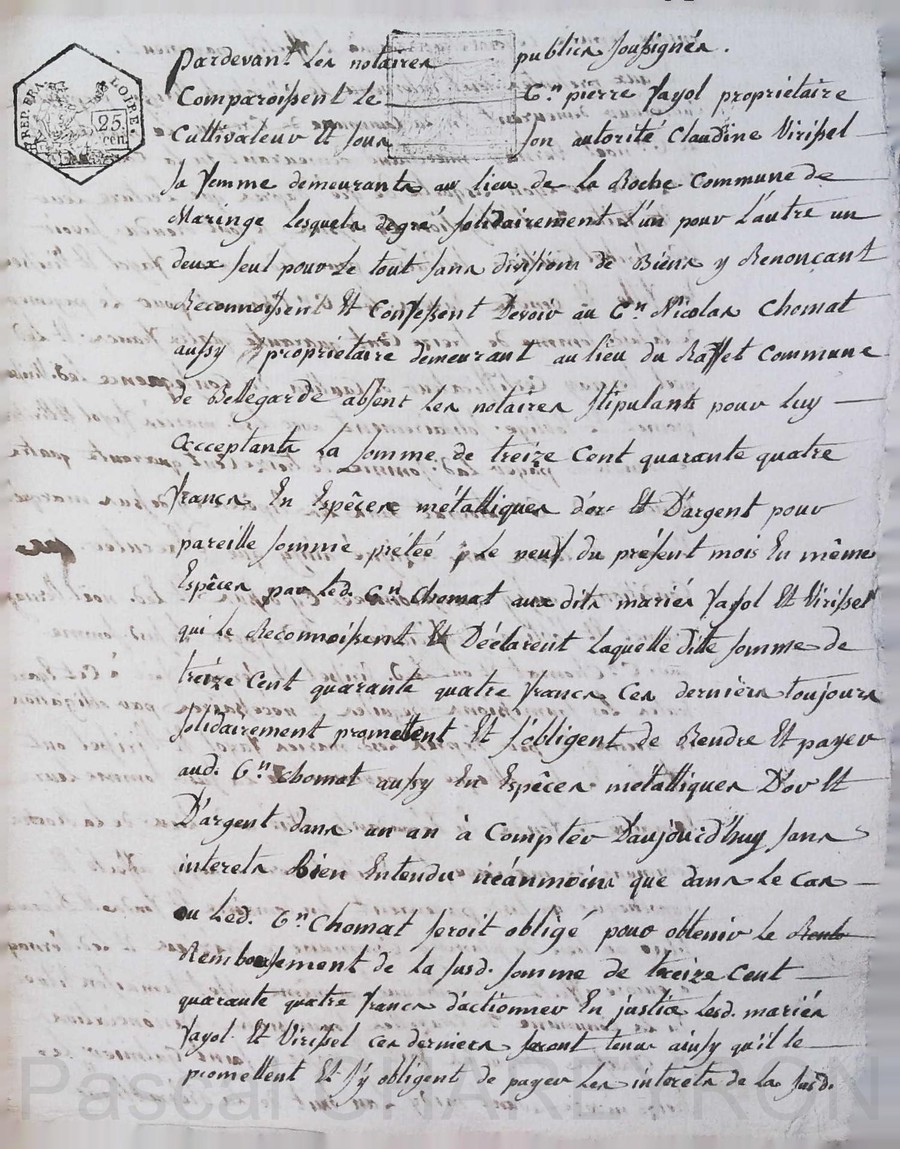 REP. FRA
LOIRE.
25
cen.
Pardevant les notaires publics soussignés.
Comparoissent le C.en pierre Fayol propriétaire
Cultivateur Et sous son autorité Claudine Virissel
sa femme demeurants au lieu de la Roche Commune de
Maringe lesquels degré solidairement L'un pour L'autre un
deux seul pour Le tout sans divisions de Biens y Renonçant
Reconnoissent Et Confessent Devoir au C.en Nicolas Chomat
aussy propriétaire demeurant au lieu du Raffet Commune
de Bellegarde absent Les notaires stipulants pour Luy
acceptants La somme de treize Cent quarante quatre
francs En Espêces métalliques d'or Et D'argent pour
pareille somme prêteé Le neuf du présent mois En même
Espêces par Led. C.en Chomat aux dits mariés Fayol Et Virissel
qui le Reconnoissent Et Déclarent Laquelle ditte somme de
treize Cent quarante quatre francs Ces derniers toujours
solidairement promettent Et s'obligent de Rendre Et payer
aud. C.en Chomat aussy En Espêces métalliques D'or Et
D'argent dans un an à Compter D'aujourd'huy sans
interets Bien Entendu néanmoins que dans Le Cas
ou Led. C.en Chomat seroit obligé pour obtenir Le
Remboursement de La susd. somme de treize Cent
quarante quatre francs d'actionner En justice Lesd. mariés
Fayol Et Virissel Ces derniers seront tenus ainsy qu'il le
promettent Et s'y obligent de payer Les interets de La susd.
Pascal CHAREYRON